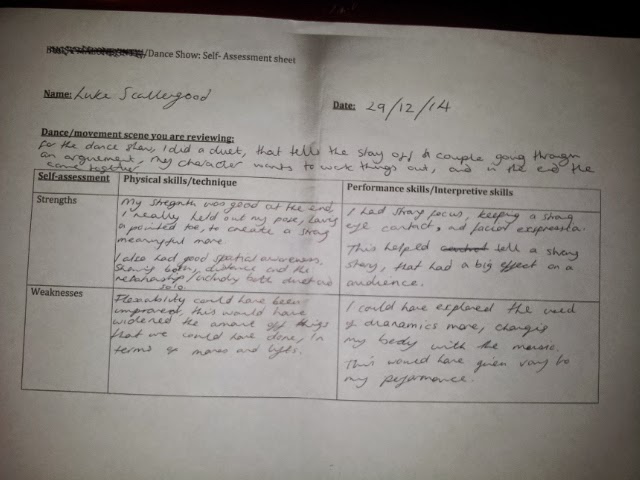 /Dance Show: Self- Assessment sheet
Name: Luke Scattergood
Date: 29/12/14
Dance/movement scene you are reviewing:
for the dance show, I did a duet, that tells the stoy off a couple going through
an arguement, my character wants to work things out, and in the end the
come together
Self-assessment Physical skills/technique Performance skills/Interpretive skills
Strengths
My stregnth was good at the end
I really held out my pose, having
a pointed toe, to create a strong
meaningful move.
I also had good spatial awareness,
showing both, distance and the
relationship, including both duet and
solo.
I had strong focus, keeping a strong
eye contact, and facial expression.
This helped sell a strong
story, that had a big effect on a
audience.
Weaknesses
Flexability could have been
improved, this would have
widened the amount off things
that we could have done, in
terms of moves and lifts.
I could have explored the used
of dynamics more, changing
my body with the music.
This would have given vary to
my performance.